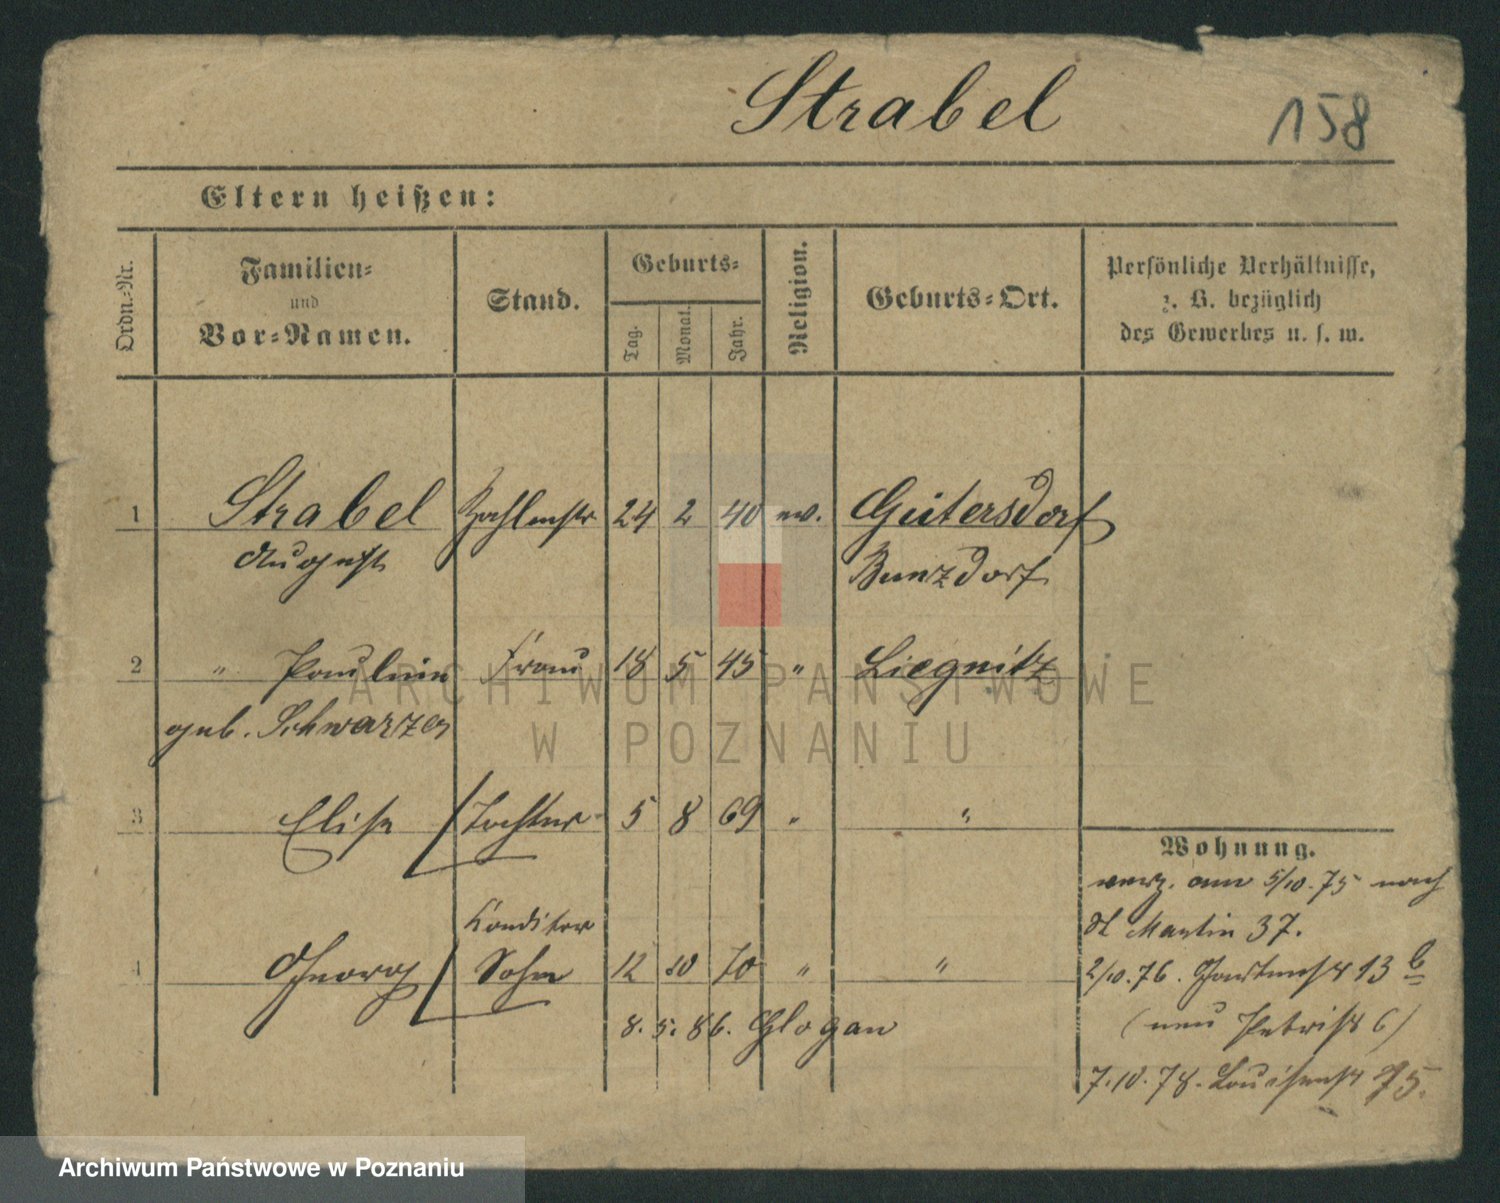 Strabel
158
Eltern heißen:
Ordn.-Nr.
Familien-
und
Vor-Namen.
Stand.
Geburts-
Tag.
Monat.
Jahr.
Religion.
Geburts-Ort.
Persönliche Verhältnisse,
z. B. bezüglich
des Gewerbes u. s. w.
1 Strabel 24 2 40 ev. Geitersdorf
August
2 " Paulin Frau 18 5 45 " Liegnitz
geb. Schwarzer
3 Elise Tochter 5 8 69 " "
Konditor
4 Georg Sohn 12 10 70 " "
8. 5. 86. Glogau
Wohnung.
verz. am 5/10. 75 nach
St Martin 37.
2/10. 76. 13 b
(neu Petristr 6)
7.10.78. Louisenstr 75.
ARCHIWUM PAŃSTWOWE
W POZNANIU
Archiwum Państwowe w Poznaniu